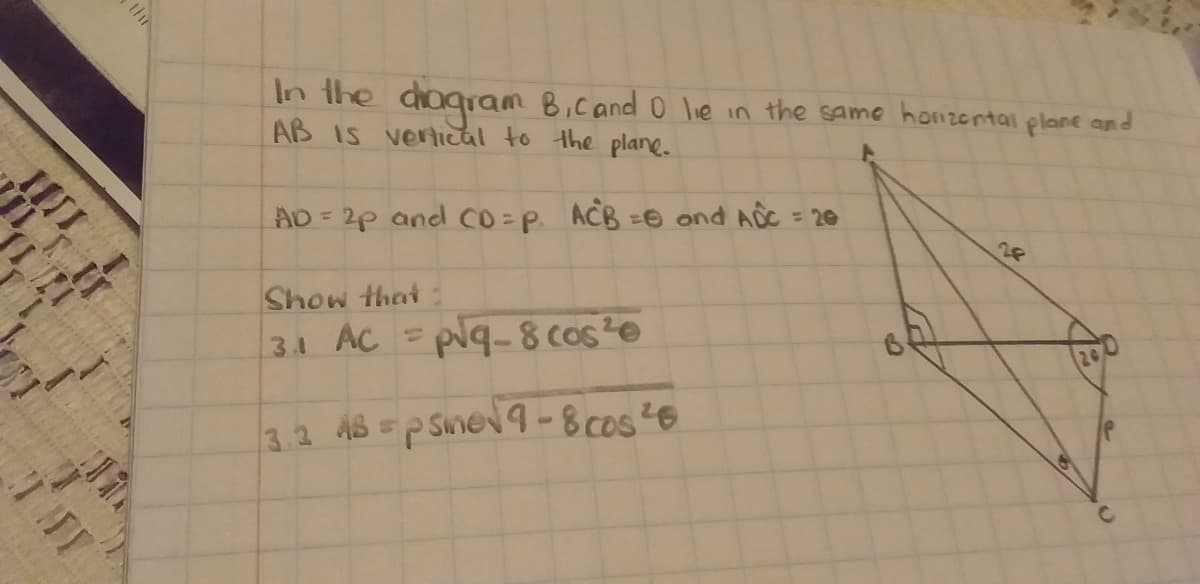 In the diagram B, C and D lie in the same horizontal plane and
AB is vertical to the plane.
AD = 2p and CD = p. AĈB = θ and AD̂C = 2θ
Show that:
3.1 AC = p√9 - 8cos²θ
3.2 AB = p sinθ√9 - 8cos²θ
A
2p
B
D
2θ
p
θ
C